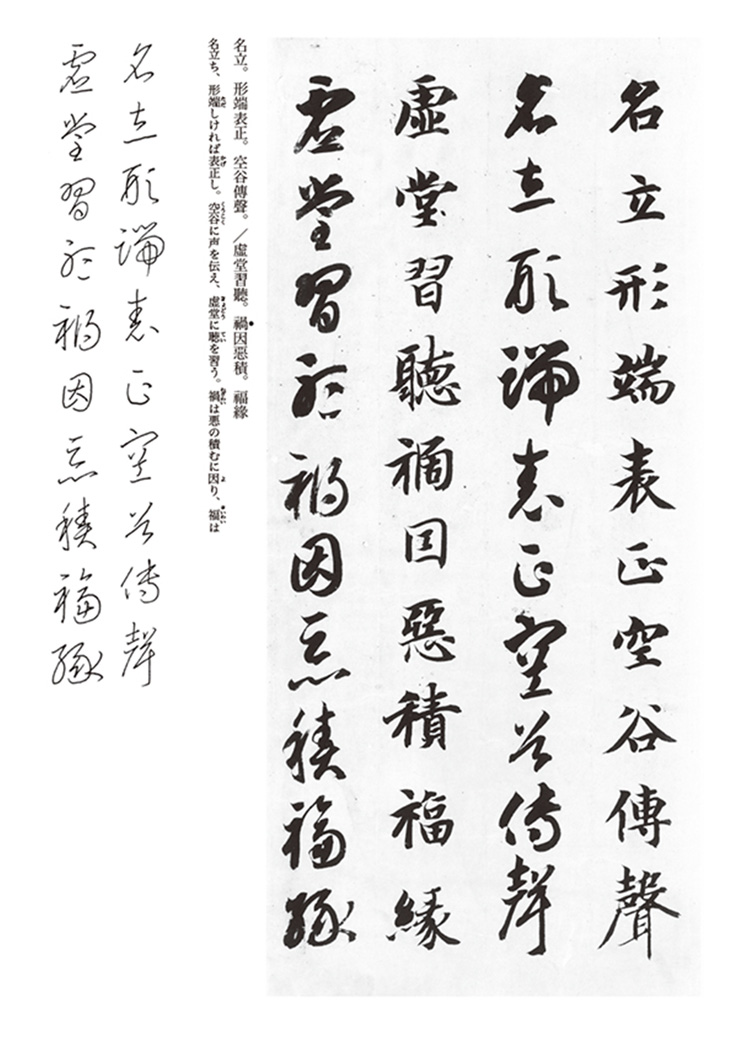 名立形端表正空谷傳聲
名立形端表正空谷傳聲
虛堂習聽禍因惡積福緣
虛堂習聽禍因惡積福緣
名立。形端表正。空谷傳聲。／虛堂習聽。禍因惡積。福緣
名立ち、形端しければ表正し。空谷に声を伝え、虚堂に聴を習う。禍は悪の積むに因り、福は
名立形端表正空谷傳聲
虛堂習聽禍因惡積福緣